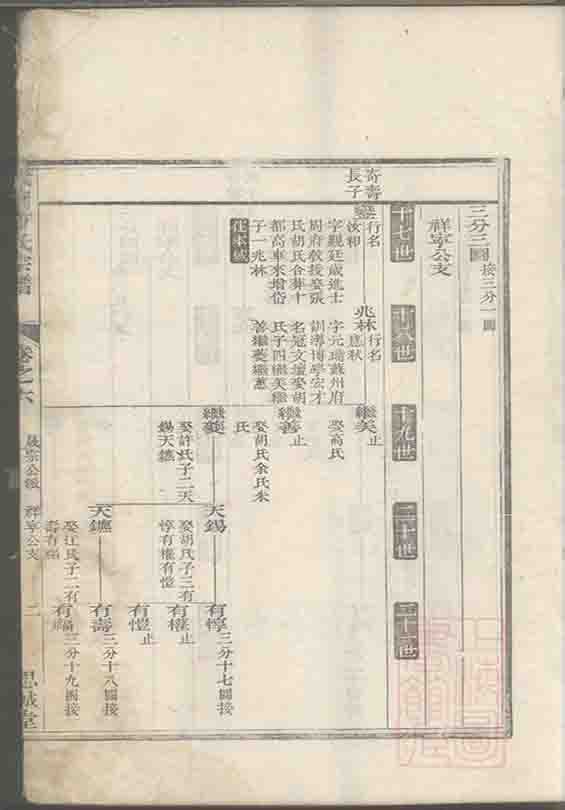 三分三圖接三分一圖
祥寧公支
十七世
十八世
十九世
二十世
二十一世
寄壽
長子
行名
汝和
字觀廷歲進士
府教授娶張
氏胡氏合葬十
都高車來增岱
子一兆林
住本城
兆林行名
字元瑞蘇州府
訓導博學宏才
名冠文壇娶胡
氏子四繼美繼
善繼夔繼蕙
繼美止
娶高氏
繼善止
娶胡氏余氏朱
氏
繼夔
娶許氏子二天
錫天鑣
天錫
娶胡氏子三有
惇有權有愷
天鑣
娶江氏子二有
壽有
有惇三分十七圖接
有權止
有愷止
有壽三分十八圖接
有三分十九圖接
祥寧公支
二
思誠堂